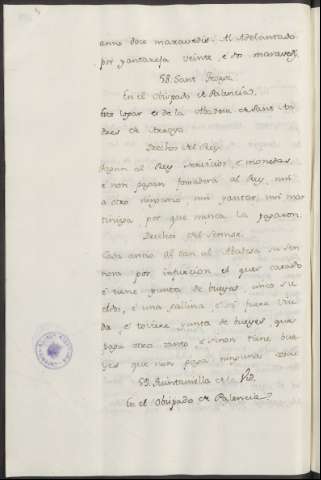 anno doce maravedis. Al Adelantado
por yantareja veinte, e do maraved.
58. Sant
En el Obispado de Palencia.
Este logar es de la Abadesa de Sant An
dres de Arroyo
Derechos del Rey.
Pagan al Rey servicios, e monedas
e non pagan fonsadera al Rey, nin
a otro ninguno nin yantar, nin mar
tiniega por que nunca la pagaron.
Derechos del Sennor.
Cada anno dan al Abadesa su sen
nora por infurcion el que es casado
e tiene yunta de bueyes, cinco su
eldos, e una gallina, e si fuere viu
da, e toviere yunta de bueyes, que
paga otro tanto, e si non tiene bue
yes que non paga ninguna cosa
59. Quintaniella de la Vid.
En el Obispado de Palencia.